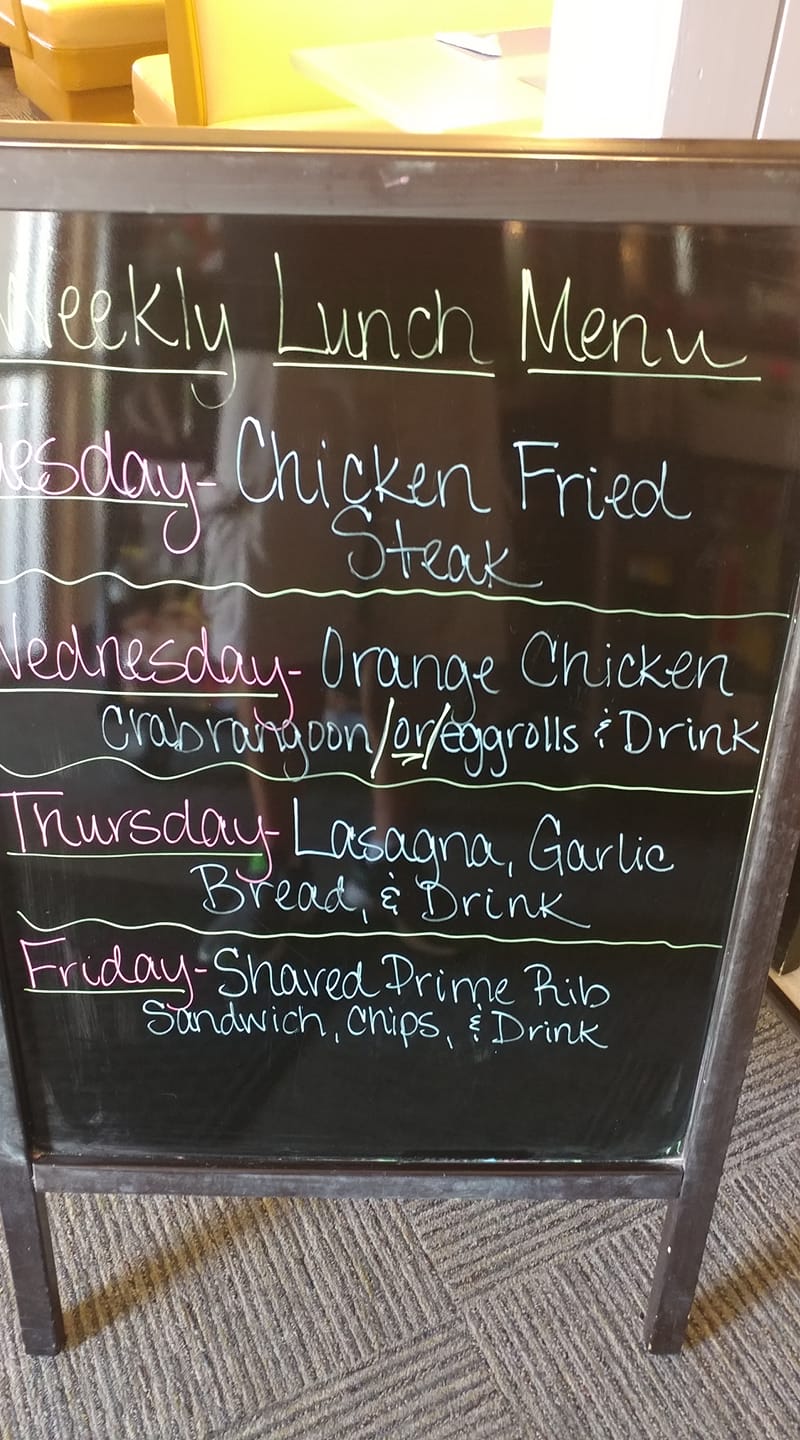 Weekly Lunch Menu
Tuesday- Chicken Fried
Steak
Wednesday- Orange Chicken
Crabrangoon/or/eggrolls & Drink
Thursday- Lasagna, Garlic
Bread, & Drink
Friday- Shaved Prime Rib
Sandwich, Chips, & Drink